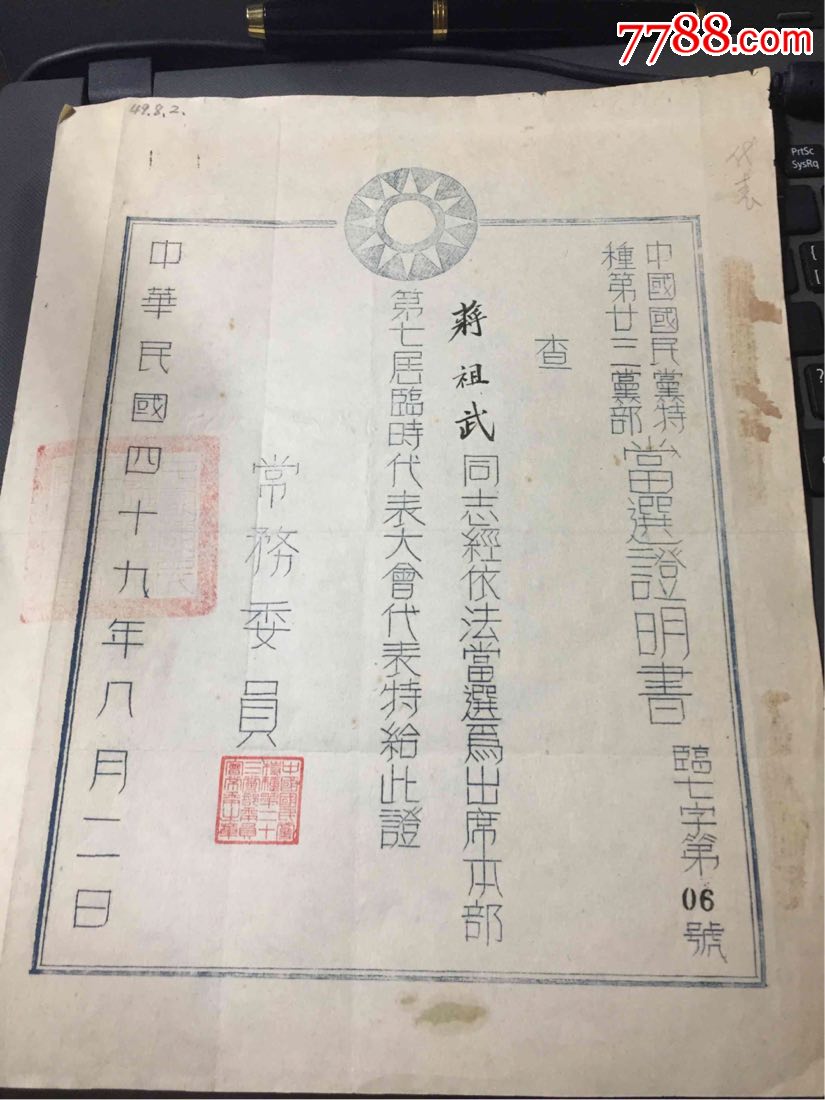 7788.com
49.8.2.
代表
PrtSc
SysRq
中國國民黨特
種第廿三黨部
當選證明書
臨七字第06號
查
蔣祖武同志經依法當選為出席本部
第七屆臨時代表大會代表特給此證
常務委員
中華民國四十九年八月二日